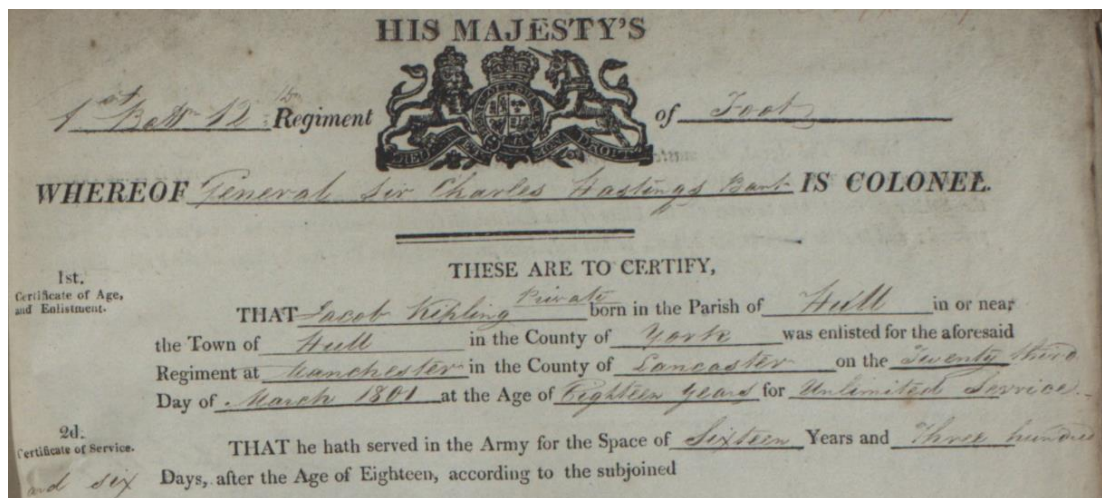 HIS MAJESTY'S
1st Batt 12th Regiment of Foot
WHEREOF General Sir Charles Hastings Bart IS COLONEL.
THESE ARE TO CERTIFY,
1st.
Certificate of Age,
and Enlistment.
THAT Jacob Kipling Private born in the Parish of Hull in or near
the Town of Hull in the County of York was enlisted for the aforesaid
Regiment at Manchester in the County of Lancaster on the Twenty third
Day of March 1801 at the Age of Eighteen years for Unlimited Service.
2d.
Certificate of Service.
THAT he hath served in the Army for the Space of Sixteen Years and Three hundred
and six Days, after the Age of Eighteen, according to the subjoined